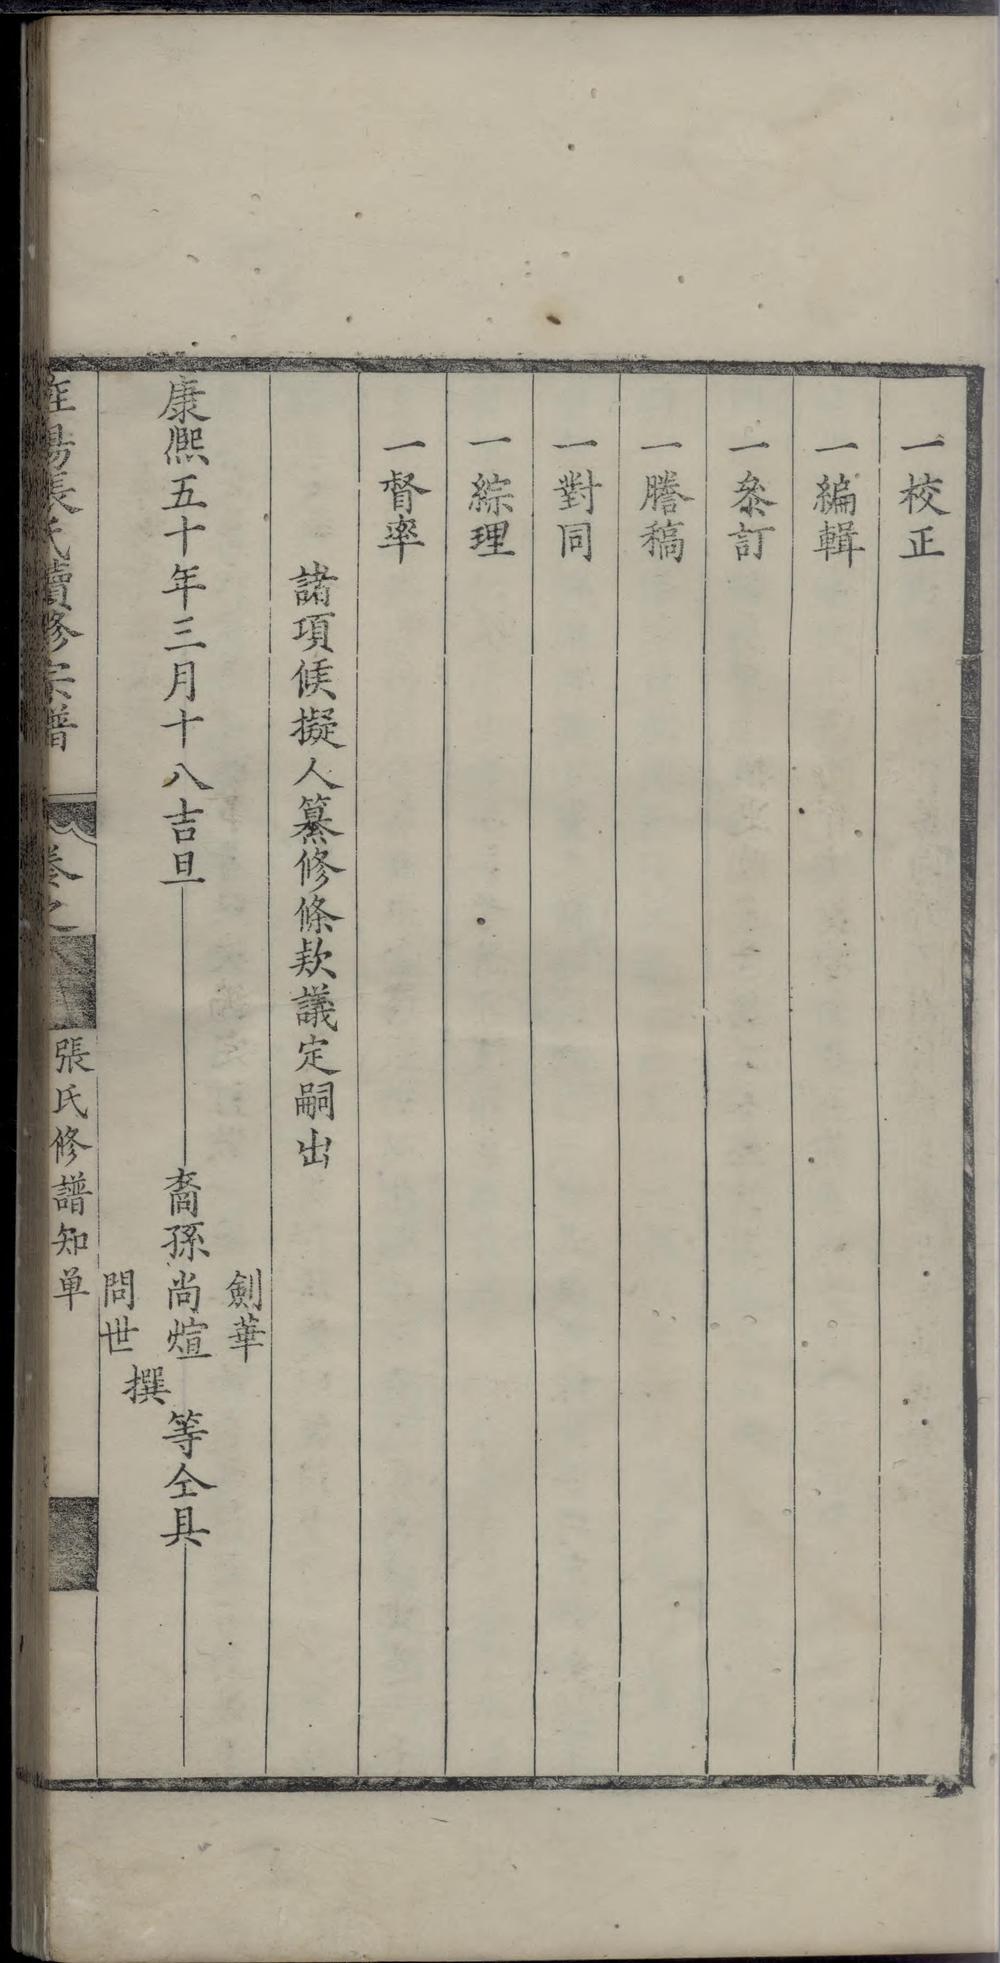 一校正
一編輯
一叅訂
一謄稿
一對同
一綜理
一督率
諸項候擬人纂修條欵議定嗣出
劍華
康熙五十年三月十八吉旦 裔孫尚煊 等仝具
問世
撰
張氏續修宗譜 卷之
張氏修譜知单